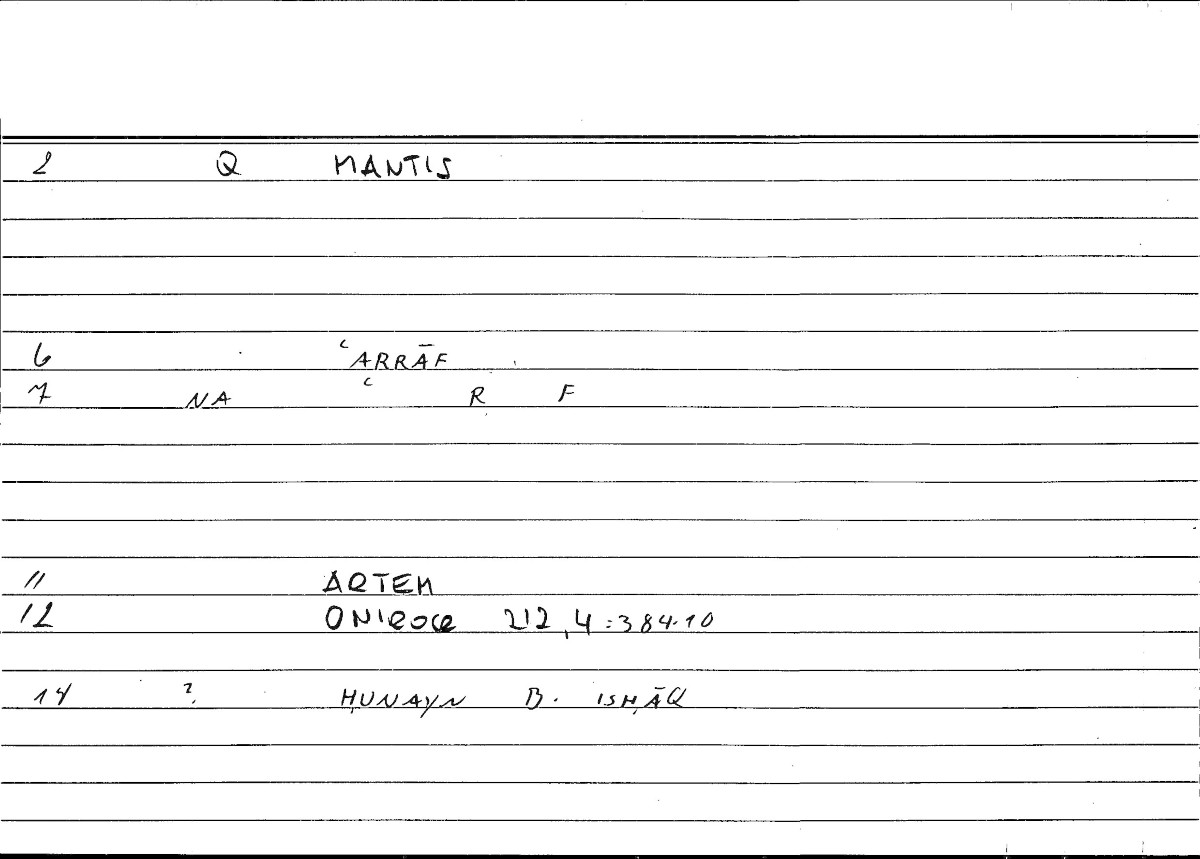 2 Q MANTIS
6 ʿARRĀF
7 NA ʿ R F
11 ARTEM
12 ONIROCR 212,4:384.10
14 ? ḤUNAYN B. ISḤĀQ